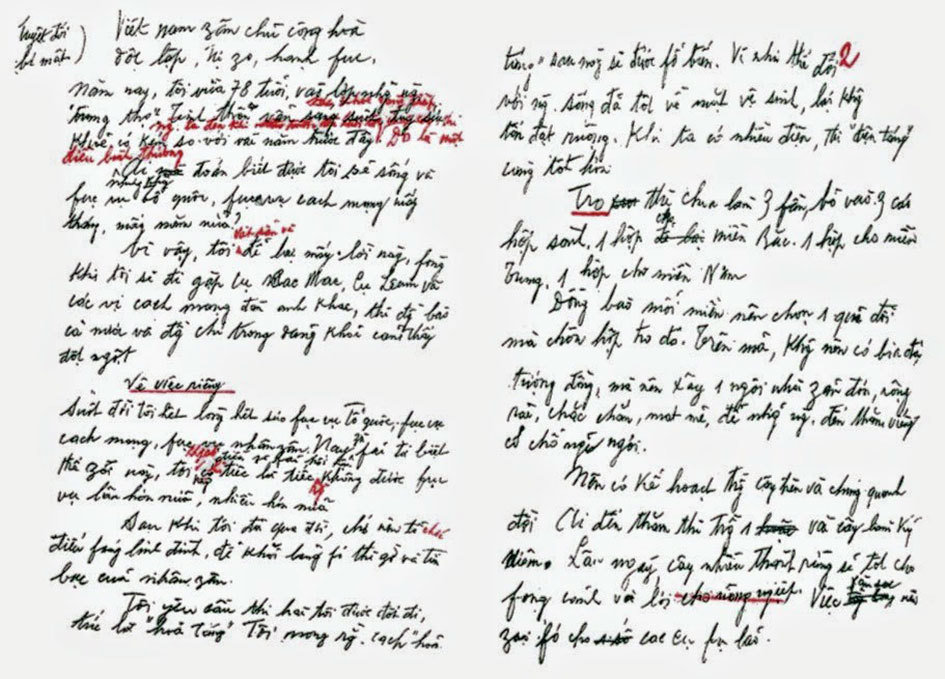 Tuyệt đối
bí mật)
Việt nam zân chủ cộng hoà
độc lập, tự zo, hạnh fúc,
Năm nay, tôi vừa 78 tuổi, vào lớp những ng.
"trung thọ". Tinh thần vẫn sáng suốt,
khoẻ, có kém so với vài năm trước đây. Đó là một
điều bình thường
Ai mà đoán biết được tôi sẽ sống và
fục vụ tổ quốc, fục vụ cách mạng mấy
tháng, mấy năm nữa?
Vì vậy, tôi để lại mấy lời này, fòng
khi tôi sẽ đi gặp cụ Các Mác, Cụ Lênin và
các vị cách mạng đàn anh khác, thì đồng bào
cả nước và đồng chí trong Đảng khỏi cảm thấy
đột ngột
Về việc riêng
Suốt đời tôi hết lòng hết sức fục vụ tổ quốc, fục vụ
cách mạng, fục vụ nhân zân. Nay zù fải từ biệt
thế zới này, tôi không có điều gì fải hối hận
chỉ tiếc là tiếc không được fục
vụ lâu hơn nữa, nhiều hơn nữa
Sau khi tôi đã qua đời, chớ nên tổ chức
điếu fúng linh đình, để khỏi lãng fí thì giờ và tiền
bạc của nhân zân.
Tôi yêu cầu thi hài tôi được đốt đi,
tức là "hoả táng". Tôi mong rằng cách "hoả
táng" sau này sẽ được fổ biến. Vì như thế đối 2
với ng. sống đã tốt về mặt vệ sinh, lại không
tốn đất ruộng. Khi ta có nhiều điện, thì "điện táng"
càng tốt hơn
Tro thì chia làm 3 fần, bỏ vào 3 cái
hộp sành, 1 hộp cho miền Bắc. 1 hộp cho miền
Trung, 1 hộp cho miền Nam
Đồng bào mỗi miền nên chọn 1 quả đồi
mà chôn hộp tro đó. Trên mả, không nên có bia đá
tượng đồng, mà nên xây 1 ngôi nhà zản đơn, rộng
rãi, chắc chắn, mát mẻ, để những ng. đến thăm viếng
có chỗ nghỉ ngơi.
Nên có kế hoạch trồng cây trên và chung quanh
đồi. Ai đến thăm thì trồng 1 vài cây làm kỷ
niệm. Lâu ngày, cây nhiều thành rừng sẽ tốt cho
fong cảnh và lợi cho nông ngiệp. Việc săn sóc nên
zao fó cho các cụ fụ lão.